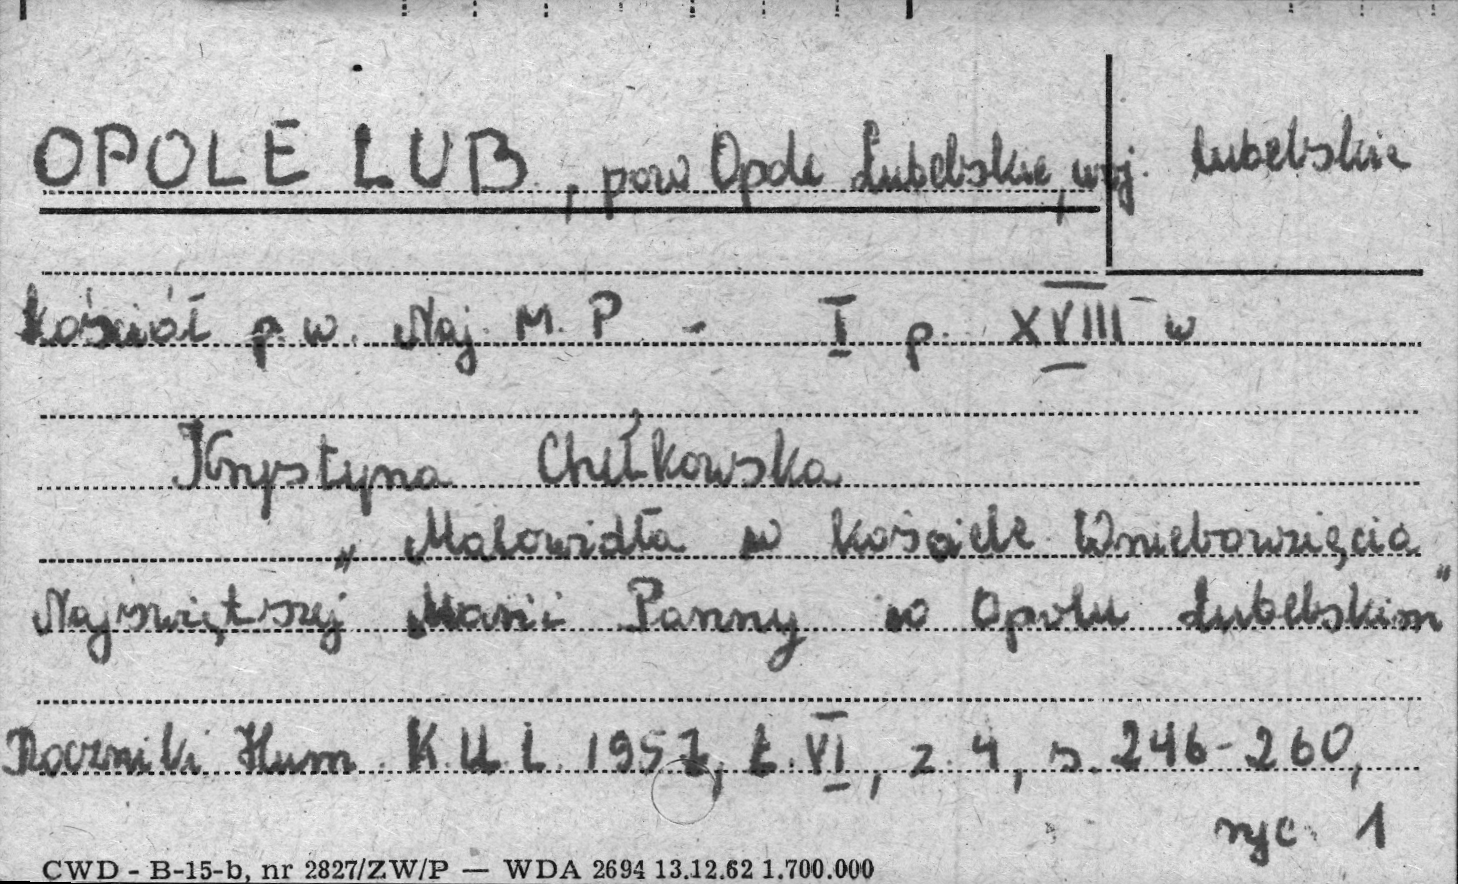 OPOLE LUB., pow Opole Lubelskie, woj. Lubelskie
Kościół p.w. Naj. M. P - I p. XVIII w
Krystyna Chełkowska
„Malowidła w kościele Wniebowzięcia
Najświętszej Marii Panny w Opolu Lubelskim"
Roczniki Hum. K.U.L. 1957, t. VI, z. 4, s. 246-260,
ryc. 1
CWD - B-15-b, nr 2827/ZW/P — WDA 2694 13.12.62 1.700.000